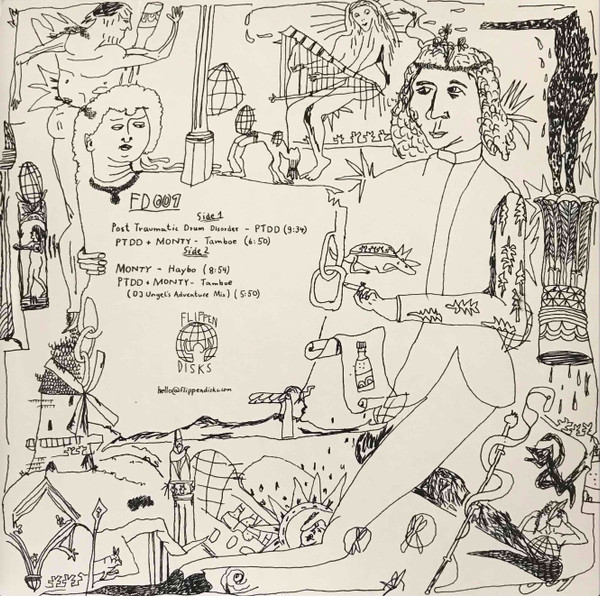 FD009
Side 1
Post Traumatic Drum Disorder - PTDD (9:34)
PTDD + MONTY - Tamboe (6:50)
Side 2
MONTY - Haybo (8:54)
PTDD + MONTY - Tamboe
(DJ Ungel's Adventure Mix) (5:50)
FLIPPEN
DISKS
hello@flippendisks.com